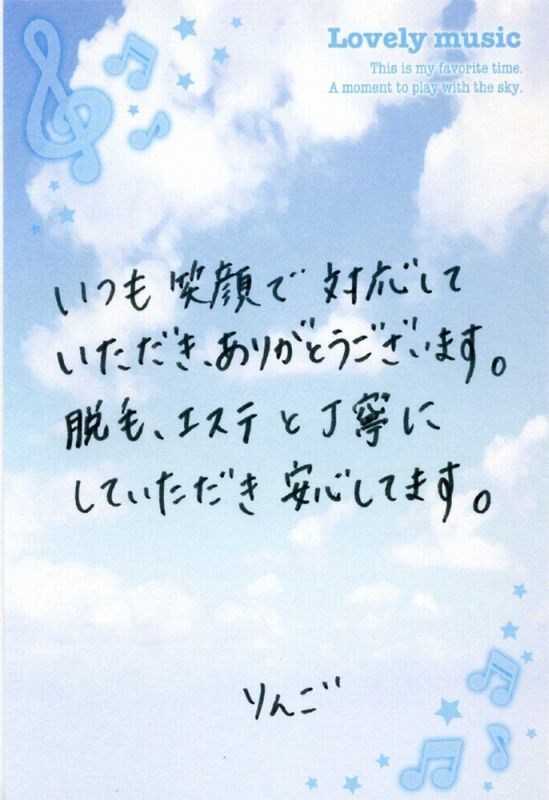 Lovely music
This is my favorite time.
A moment to play with the sky.
いつも笑顔で対応して
いただき、ありがとうございます。
脱毛、エステと丁寧に
していただき安心してます。
りんご